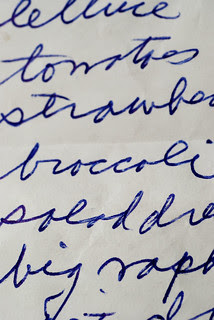 lettuce
tomatoes
strawbe
broccoli
salad dre
big